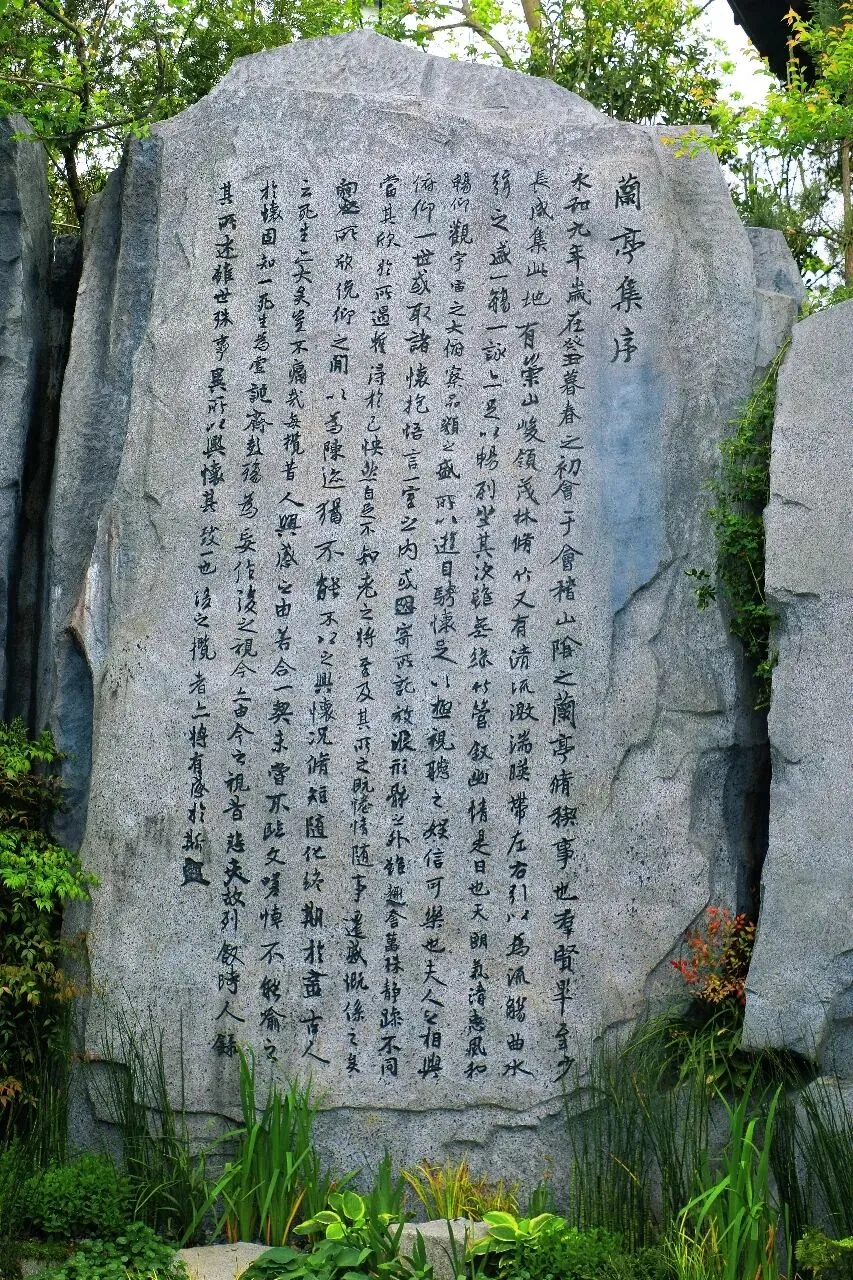 蘭亭集序
永和九年歲在癸丑暮春之初會于會稽山陰之蘭亭脩禊事也群賢畢至少
長咸集此地有崇山峻領茂林脩竹又有清流激湍暎帶左右引以為流觴曲水
絃之盛一觴一詠亦足以暢列坐其次雖無絲竹管敘幽情是日也天朗氣清惠風和
暢仰觀宇宙之大俯察品類之盛所以遊目騁懷足以極視聽之娛信可樂也夫人之相與
俯仰一世或取諸懷抱悟言一室之內或因寄所託放浪形骸之外雖趣舍萬殊靜躁不同
當其欣於所遇暫得於己怏然自足不知老之將至及其所之既惓情隨事遷感慨係之矣
向之所欣俛仰之間以為陳迹猶不能不以之興懷況脩短隨化終期於盡古人
云死生亦大矣豈不痛哉每攬昔人興感之由若合一契未嘗不臨文嗟悼不能喻之
於懷固知一死生為虛誕齊彭殤為妄作後之視今亦由今之視昔悲夫故列敘時人錄
其所述雖世殊事異所以興懷其致一也後之攬者亦將有感於斯文